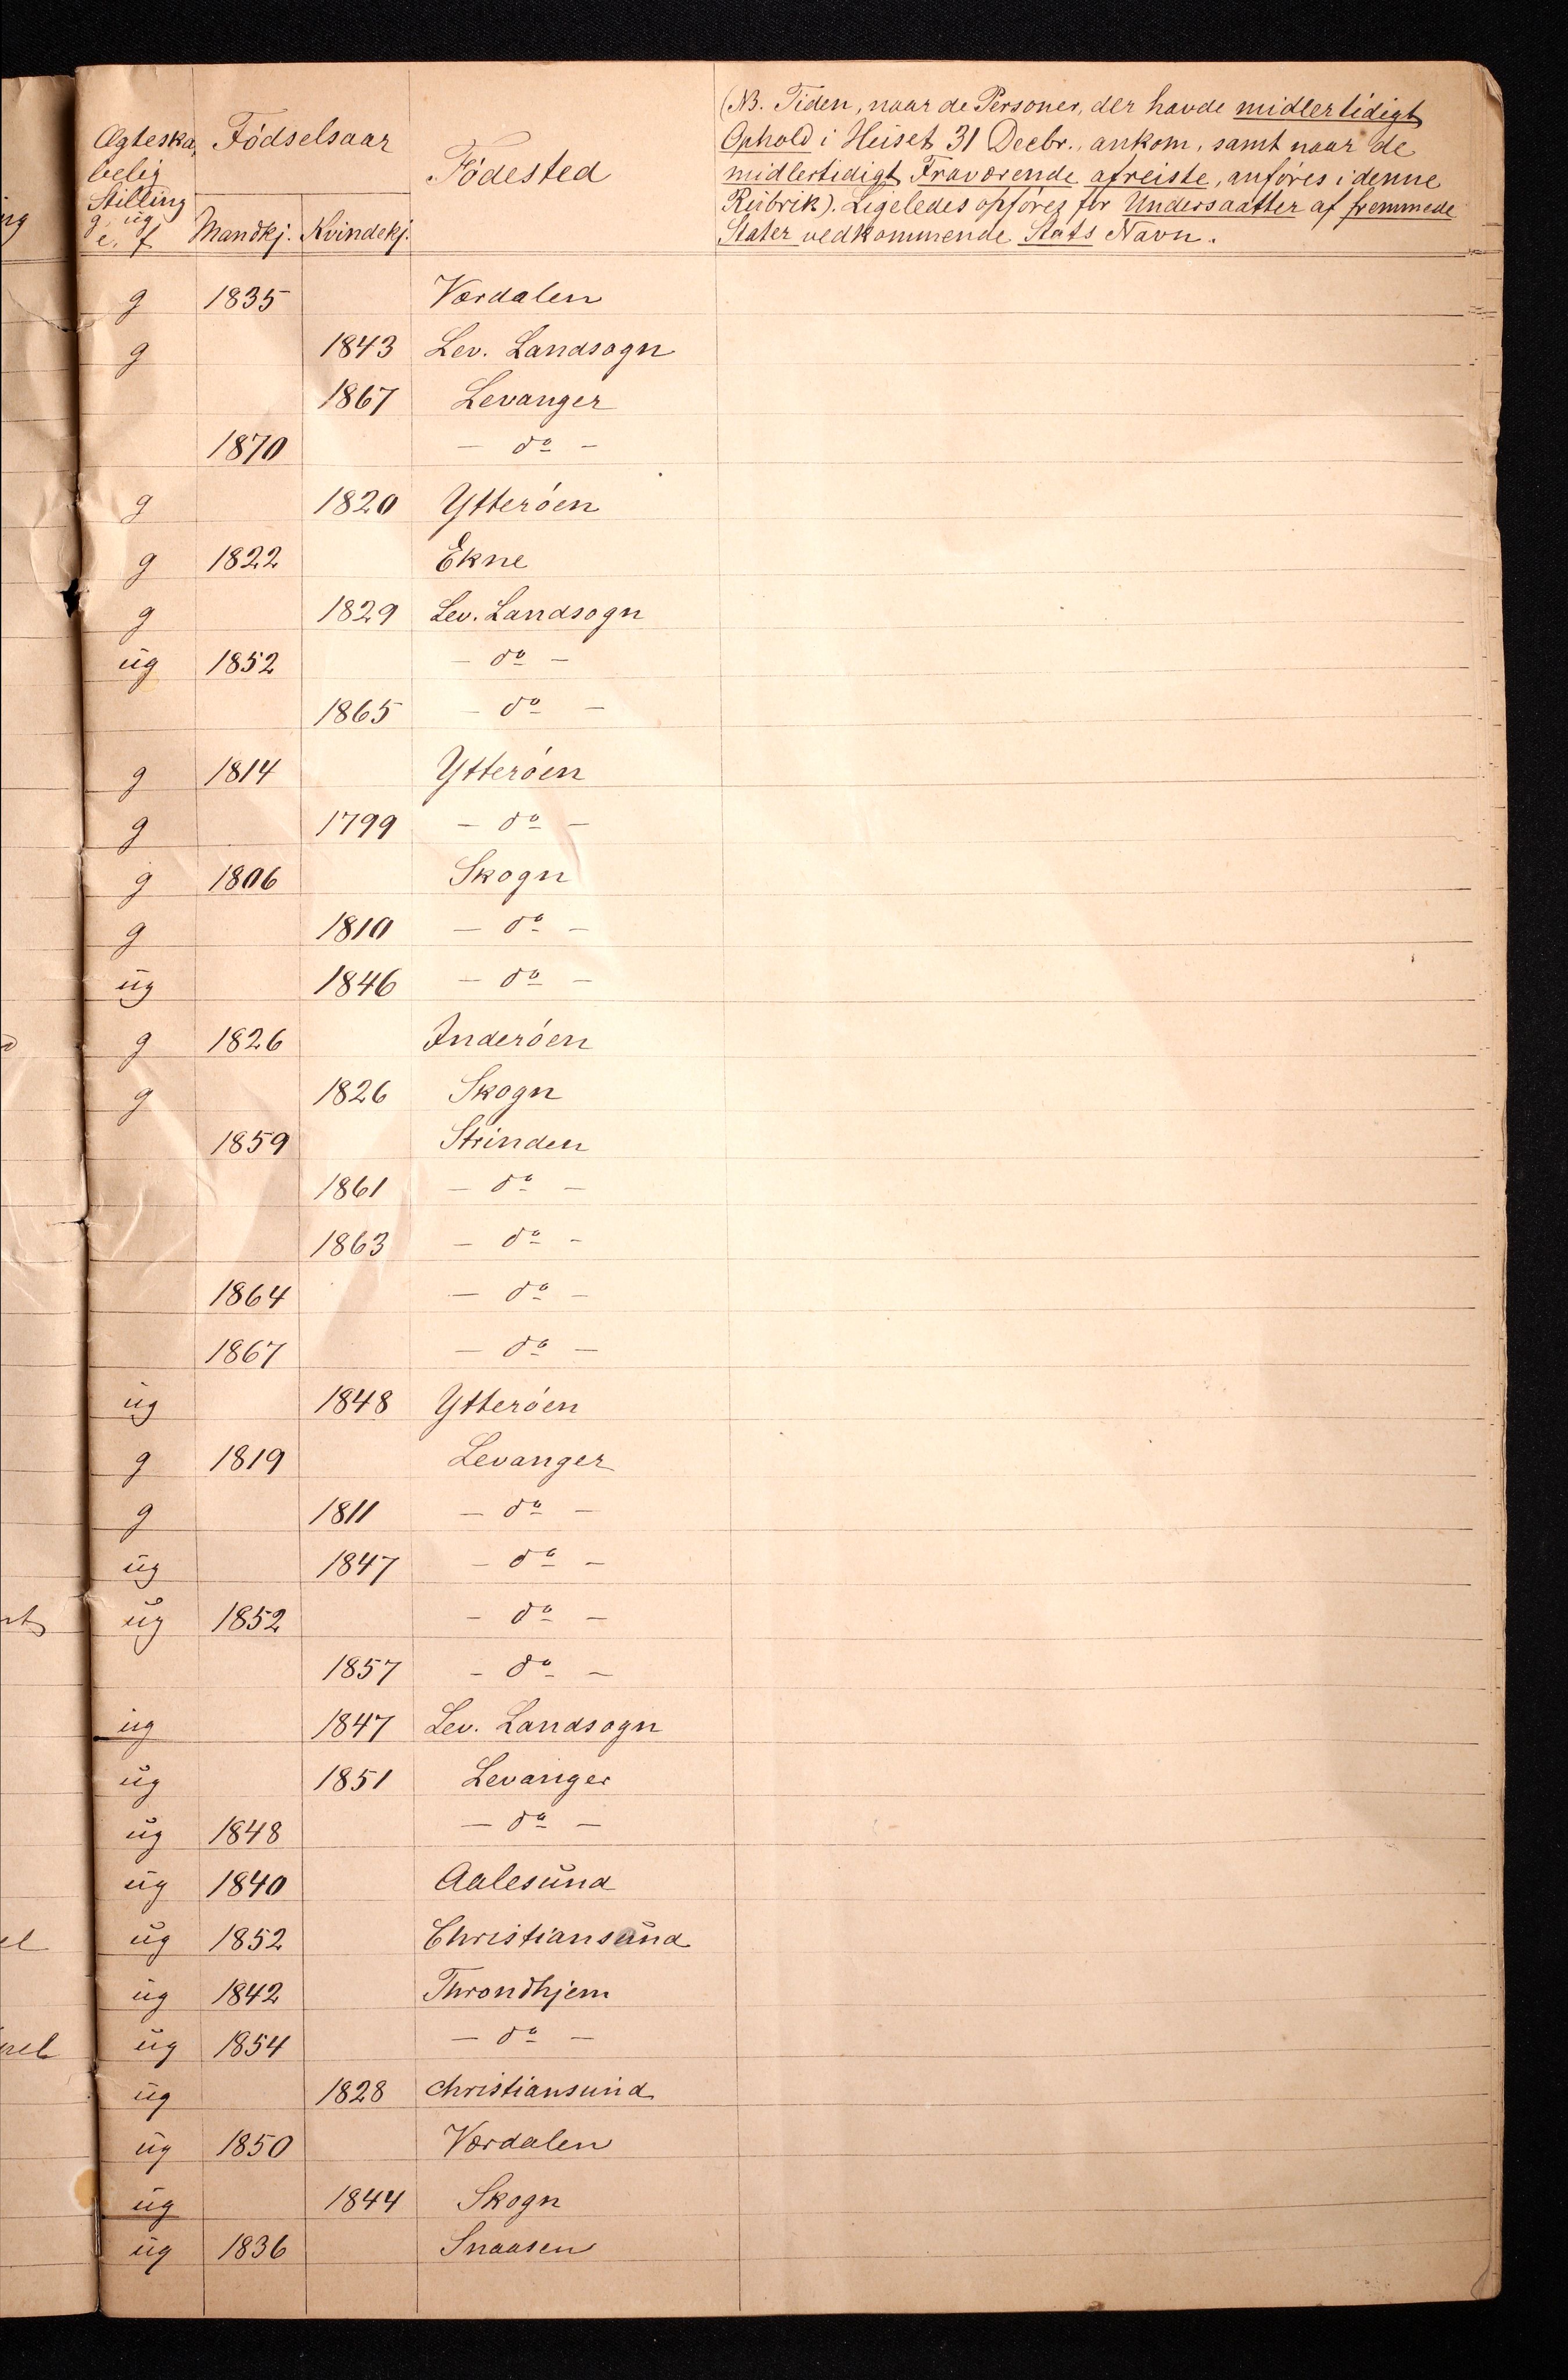 Ægteska,
belig
Stilling
g, ug
e, f
Födselsaar
Mandkj. Kvindekj.
Födested
(NB. Tiden, naar de Personer, der havde midlertidigt
Ophold i Huset 31 Decbr., ankom, samt naar de
midlertidigt Fraværende afreiste, anföres i denne
Rubrik). Ligeledes opföres for Undersaatter af fremmede
Stater vedkommende Stats Navn.
g 1835 Værdalen
g 1843 Lev. Landsogn
1867 Levanger
1870 - do -
g 1820 Ytteröen
g 1822 Ekne
g 1829 Lev. Landsogn
ug 1852 - do -
1865 - do -
g 1814 Ytteröen
g 1799 - do -
g 1806 Skogn
g 1810 - do -
ug 1846 - do -
g 1826 Inderöen
g 1826 Skogn
1859 Strinden
1861 - do -
1863 - do -
1864 - do -
1867 - do -
ug 1848 Ytteröen
g 1819 Levanger
g 1811 - do -
ug 1847 - do -
ug 1852 - do -
1857 - do -
ug 1847 Lev. Landsogn
ug 1851 Levanger
ug 1848 - do -
ug 1840 Aalesund
ug 1852 Christiansund
ug 1842 Throndhjem
ug 1854 - do -
ug 1828 Christiansund
ug 1850 Værdalen
ug 1844 Skogn
ug 1836 Snaasen